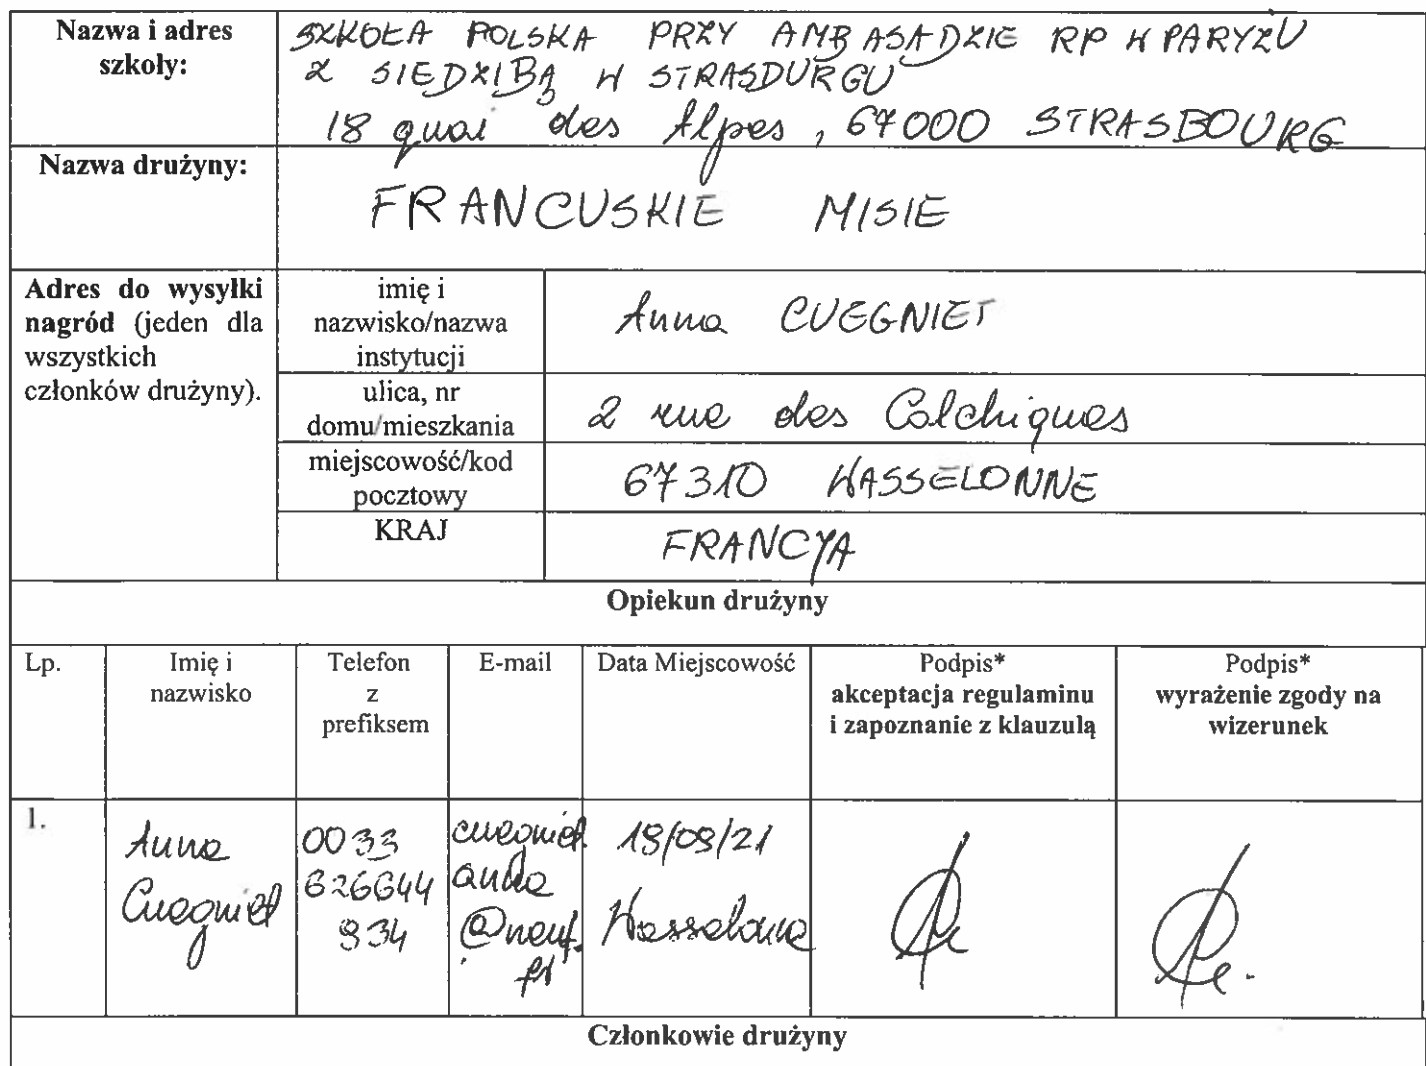 Nazwa i adres szkoły:
SZKOŁA POLSKA PRZY AMBASADZIE RP W PARYŻU
Z SIEDZIBĄ W STRASDURGU
18 quai des Alpes, 67000 STRASBOURG
Nazwa drużyny:
FRANCUSKIE MISIE
Adres do wysyłki
nagród (jeden dla
wszystkich
członków drużyny).
imię i
nazwisko/nazwa
instytucji
Anna CUEGNIET
ulica, nr
domu/mieszkania
2 rue des Colchiques
miejscowość/kod
pocztowy
67310 WASSELONNE
KRAJ
FRANCYA
Opiekun drużyny
Lp.
Imię i
nazwisko
Telefon
z
prefiksem
E-mail
Data Miejscowość
Podpis*
akceptacja regulaminu
i zapoznanie z klauzulą
Podpis*
wyrażenie zgody na
wizerunek
1.
Anna
Cuegniet
0033
626644
934
cuegniet
anna
@neuf.
fr
Wasselonne
Członkowie drużyny